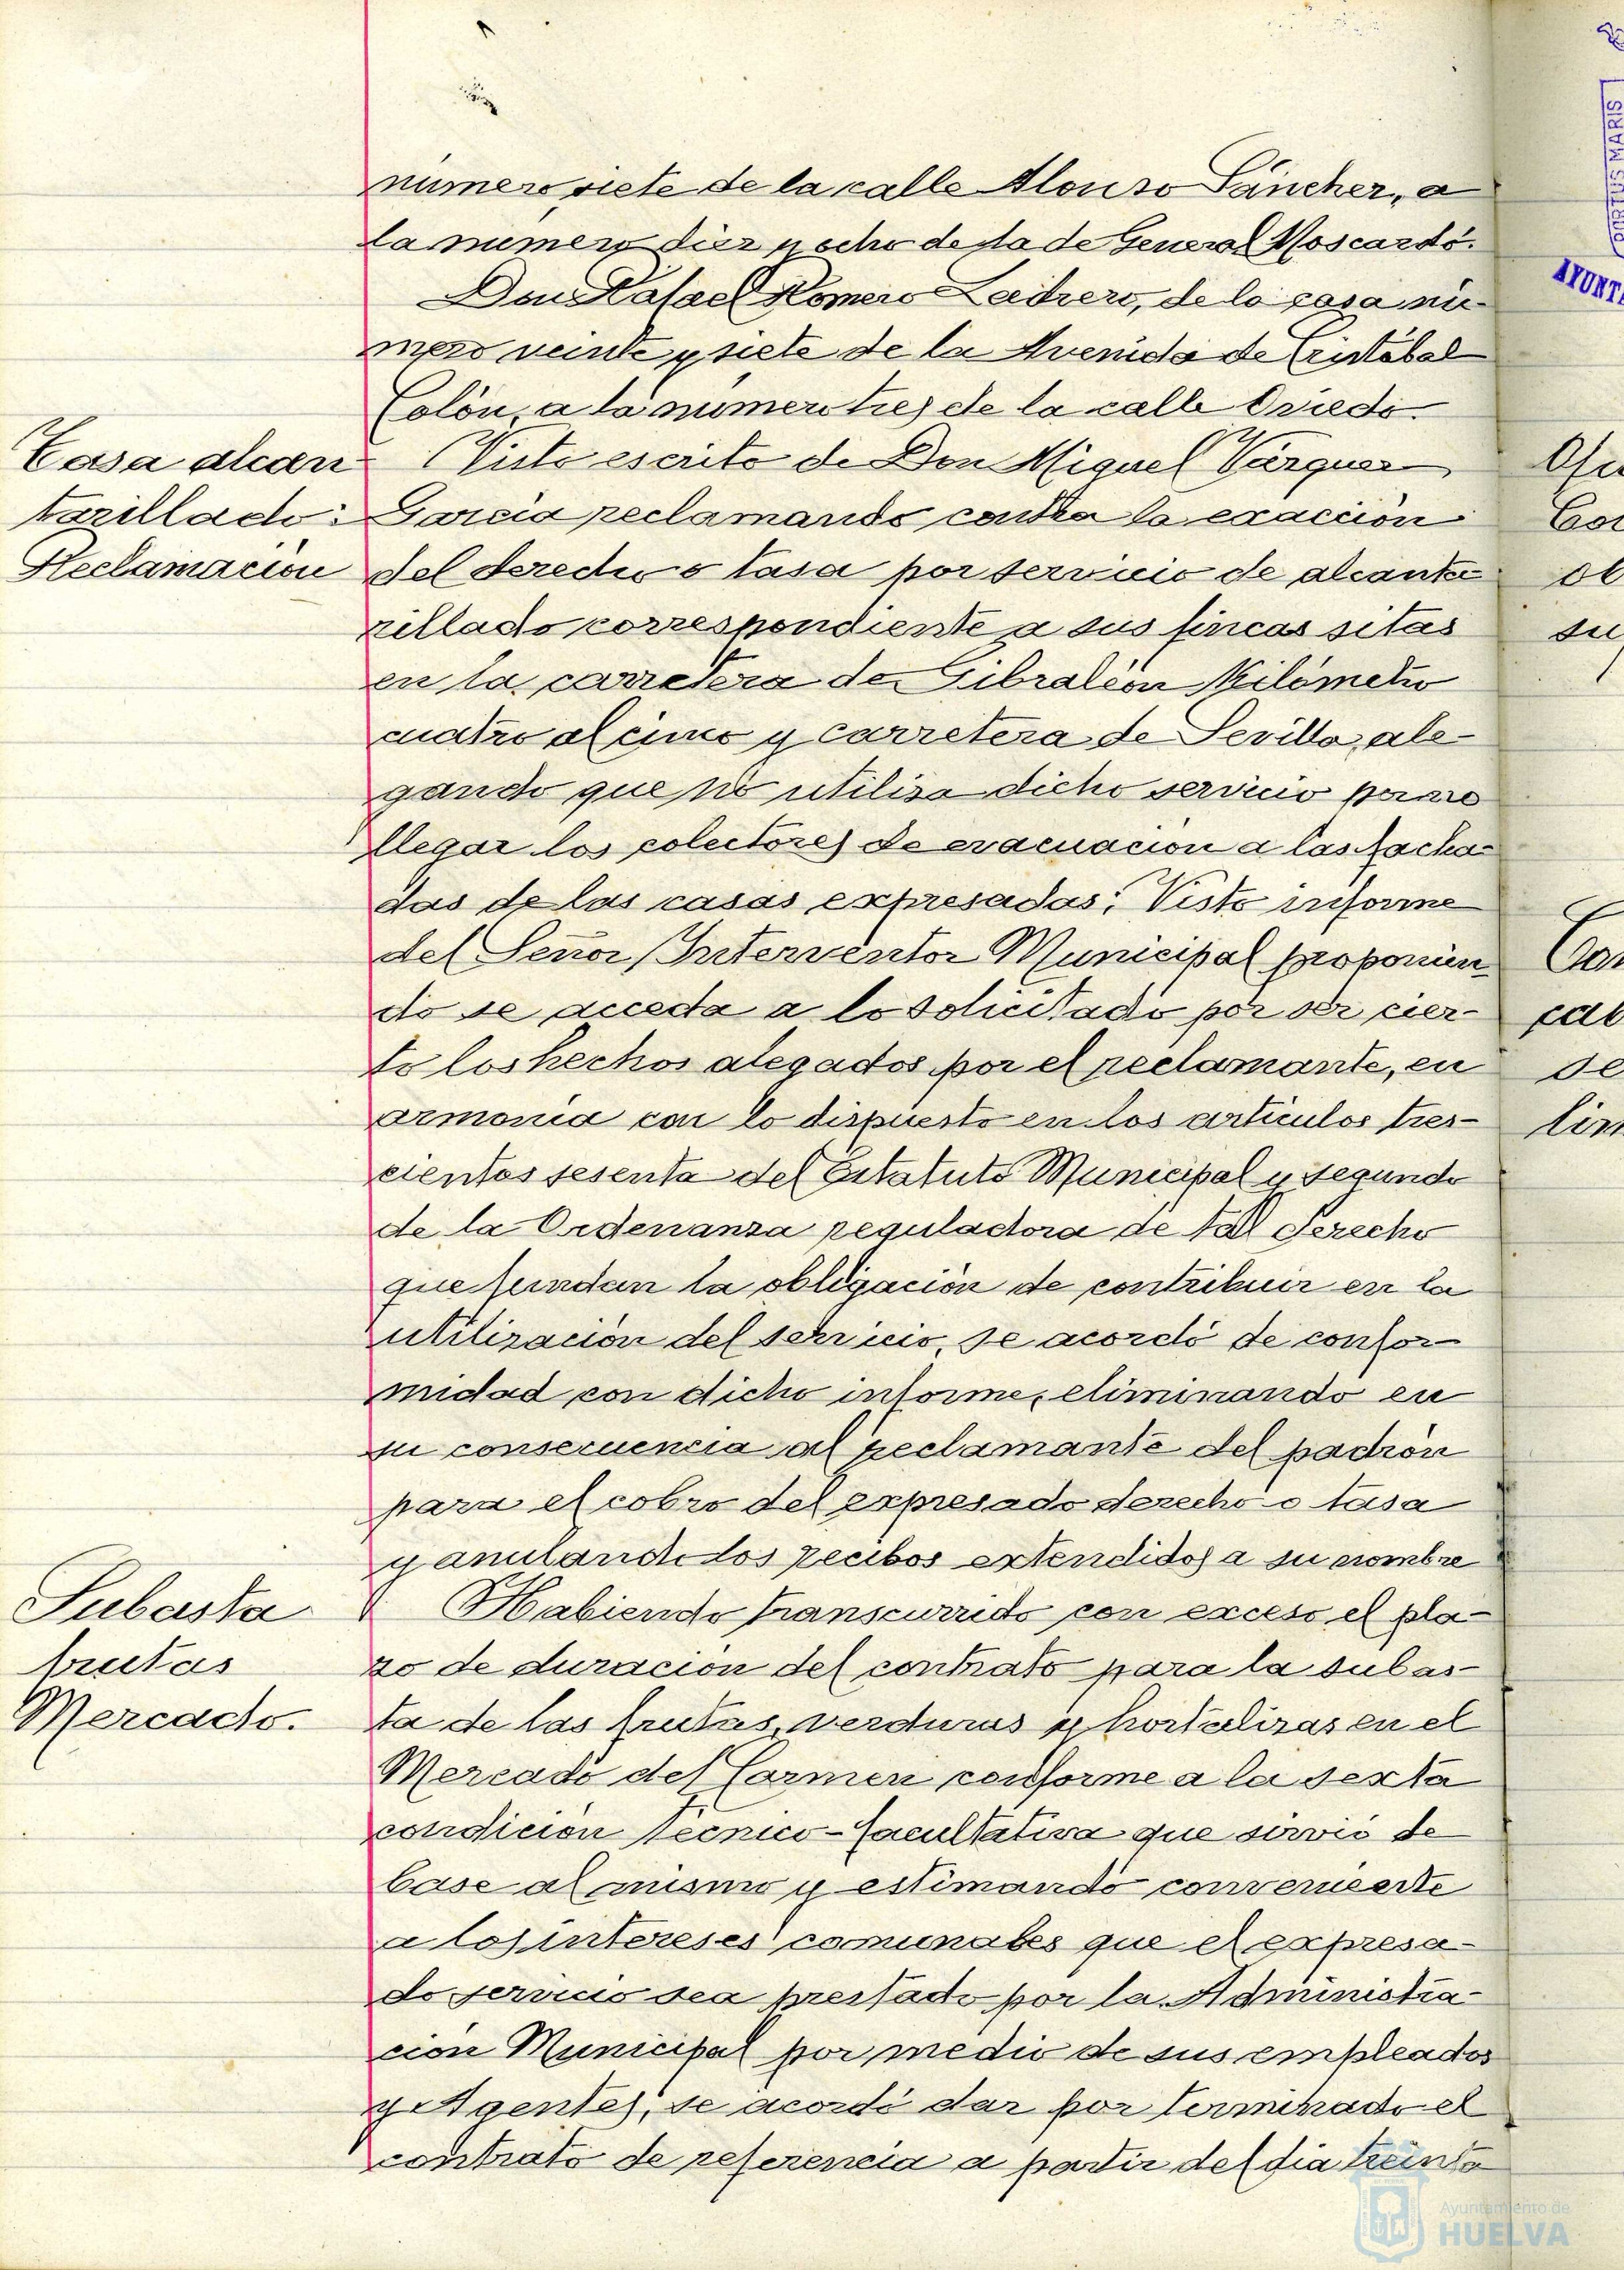 número siete de la calle Alonso Sánchez, a
la número diez y ocho de la de General Moscardó.
Don Rafael Romero Ladrero, de la casa nú-
mero veinte y siete de la Avenida de Cristóbal
Colón, a la número tres de la calle Oviedo.
Tasa alcan
tarillado:
Reclamación
Visto escrito de Don Miguel Vázquez
García reclamando contra la exacción
del derecho o tasa por servicio de alcanta
rillado correspondiente a sus fincas sitas
en la carretera de Gibraleón Kilómetro
cuatro al cinco y carretera de Sevilla, ale-
gando que no utiliza dicho servicio por no
llegar los colectores de evacuación a las facha
das de las casas expresadas; Visto informe
del Señor Interventor Municipal proponien
do se acceda a lo solicitado por ser cier-
to los hechos alegados por el reclamante, en
armonía con lo dispuesto en los artículos tres-
cientos sesenta del Estatuto Municipal y segundo
de la Ordenanza reguladora de tal derecho
que fundan la obligación de contribuir en la
utilización del servicio, se acordó de confor-
midad con dicho informe, eliminando en
su consecuencia al reclamante del padrón
para el cobro del expresado derecho o tasa
y anulando los recibos extendidos a su nombre
Subasta
frutas
Mercado.
Habiendo transcurrido con exceso el pla-
zo de duración del contrato para la subas-
ta de las frutas, verduras y hortalizas en el
Mercado del Carmen conforme a la sexta
condición técnico-facultativa que sirvió de
base al mismo y estimando conveniente
a los intereses comunales que el expresa-
do servicio sea prestado por la Administra-
ción Municipal por medio de sus empleados
y Agentes, se acordó dar por terminado el
contrato de referencia a partir del día treinta
PORTUS MARIS
AYUNT
Ayuntamiento de
HUELVA